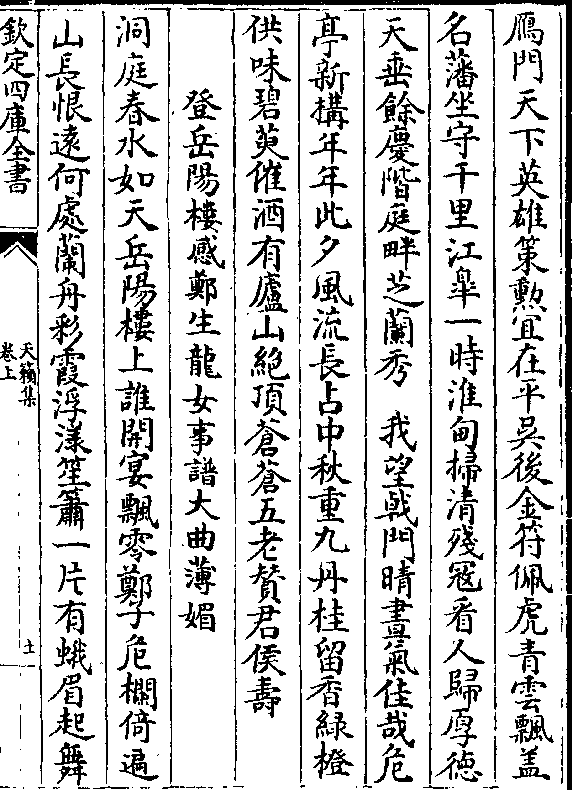 鴈門天下英雄策勲宜在平吳後金符佩虎青雲飄盖
名藩坐守千里江臯一時淮甸掃清殘冦看人歸厚徳
天垂餘慶階庭畔芝蘭秀　我望㦸門晴晝氣佳哉危
亭新構年年此夕風流長占中秋重九丹桂留香緑橙
供味碧萸催酒有廬山絶頂蒼蒼五老賛君侯壽
登岳陽樓感鄭生龍女事譜大曲薄媚
洞庭春水如天岳陽樓上誰開宴飄零鄭子危欄倚遍
山長恨逺何處蘭舟彩霞浮漾笙簫一片有蛾眉起舞
欽定四庫全書
天籟集
卷上
土